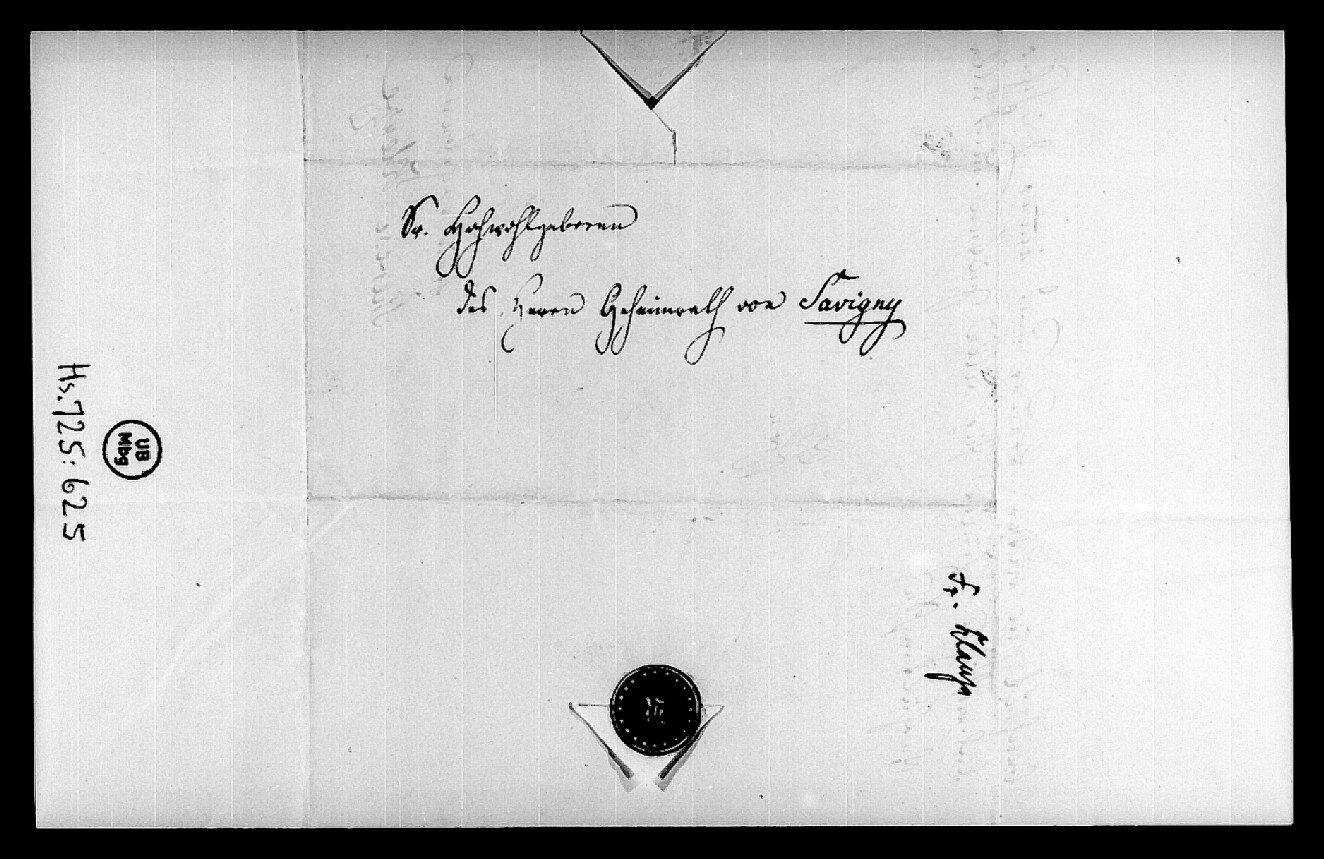 Sr. Hochwohlgeboren
des Herrn Geheimrath von Savigny
Hs. 725: 625
UB
Mbg
Fr.